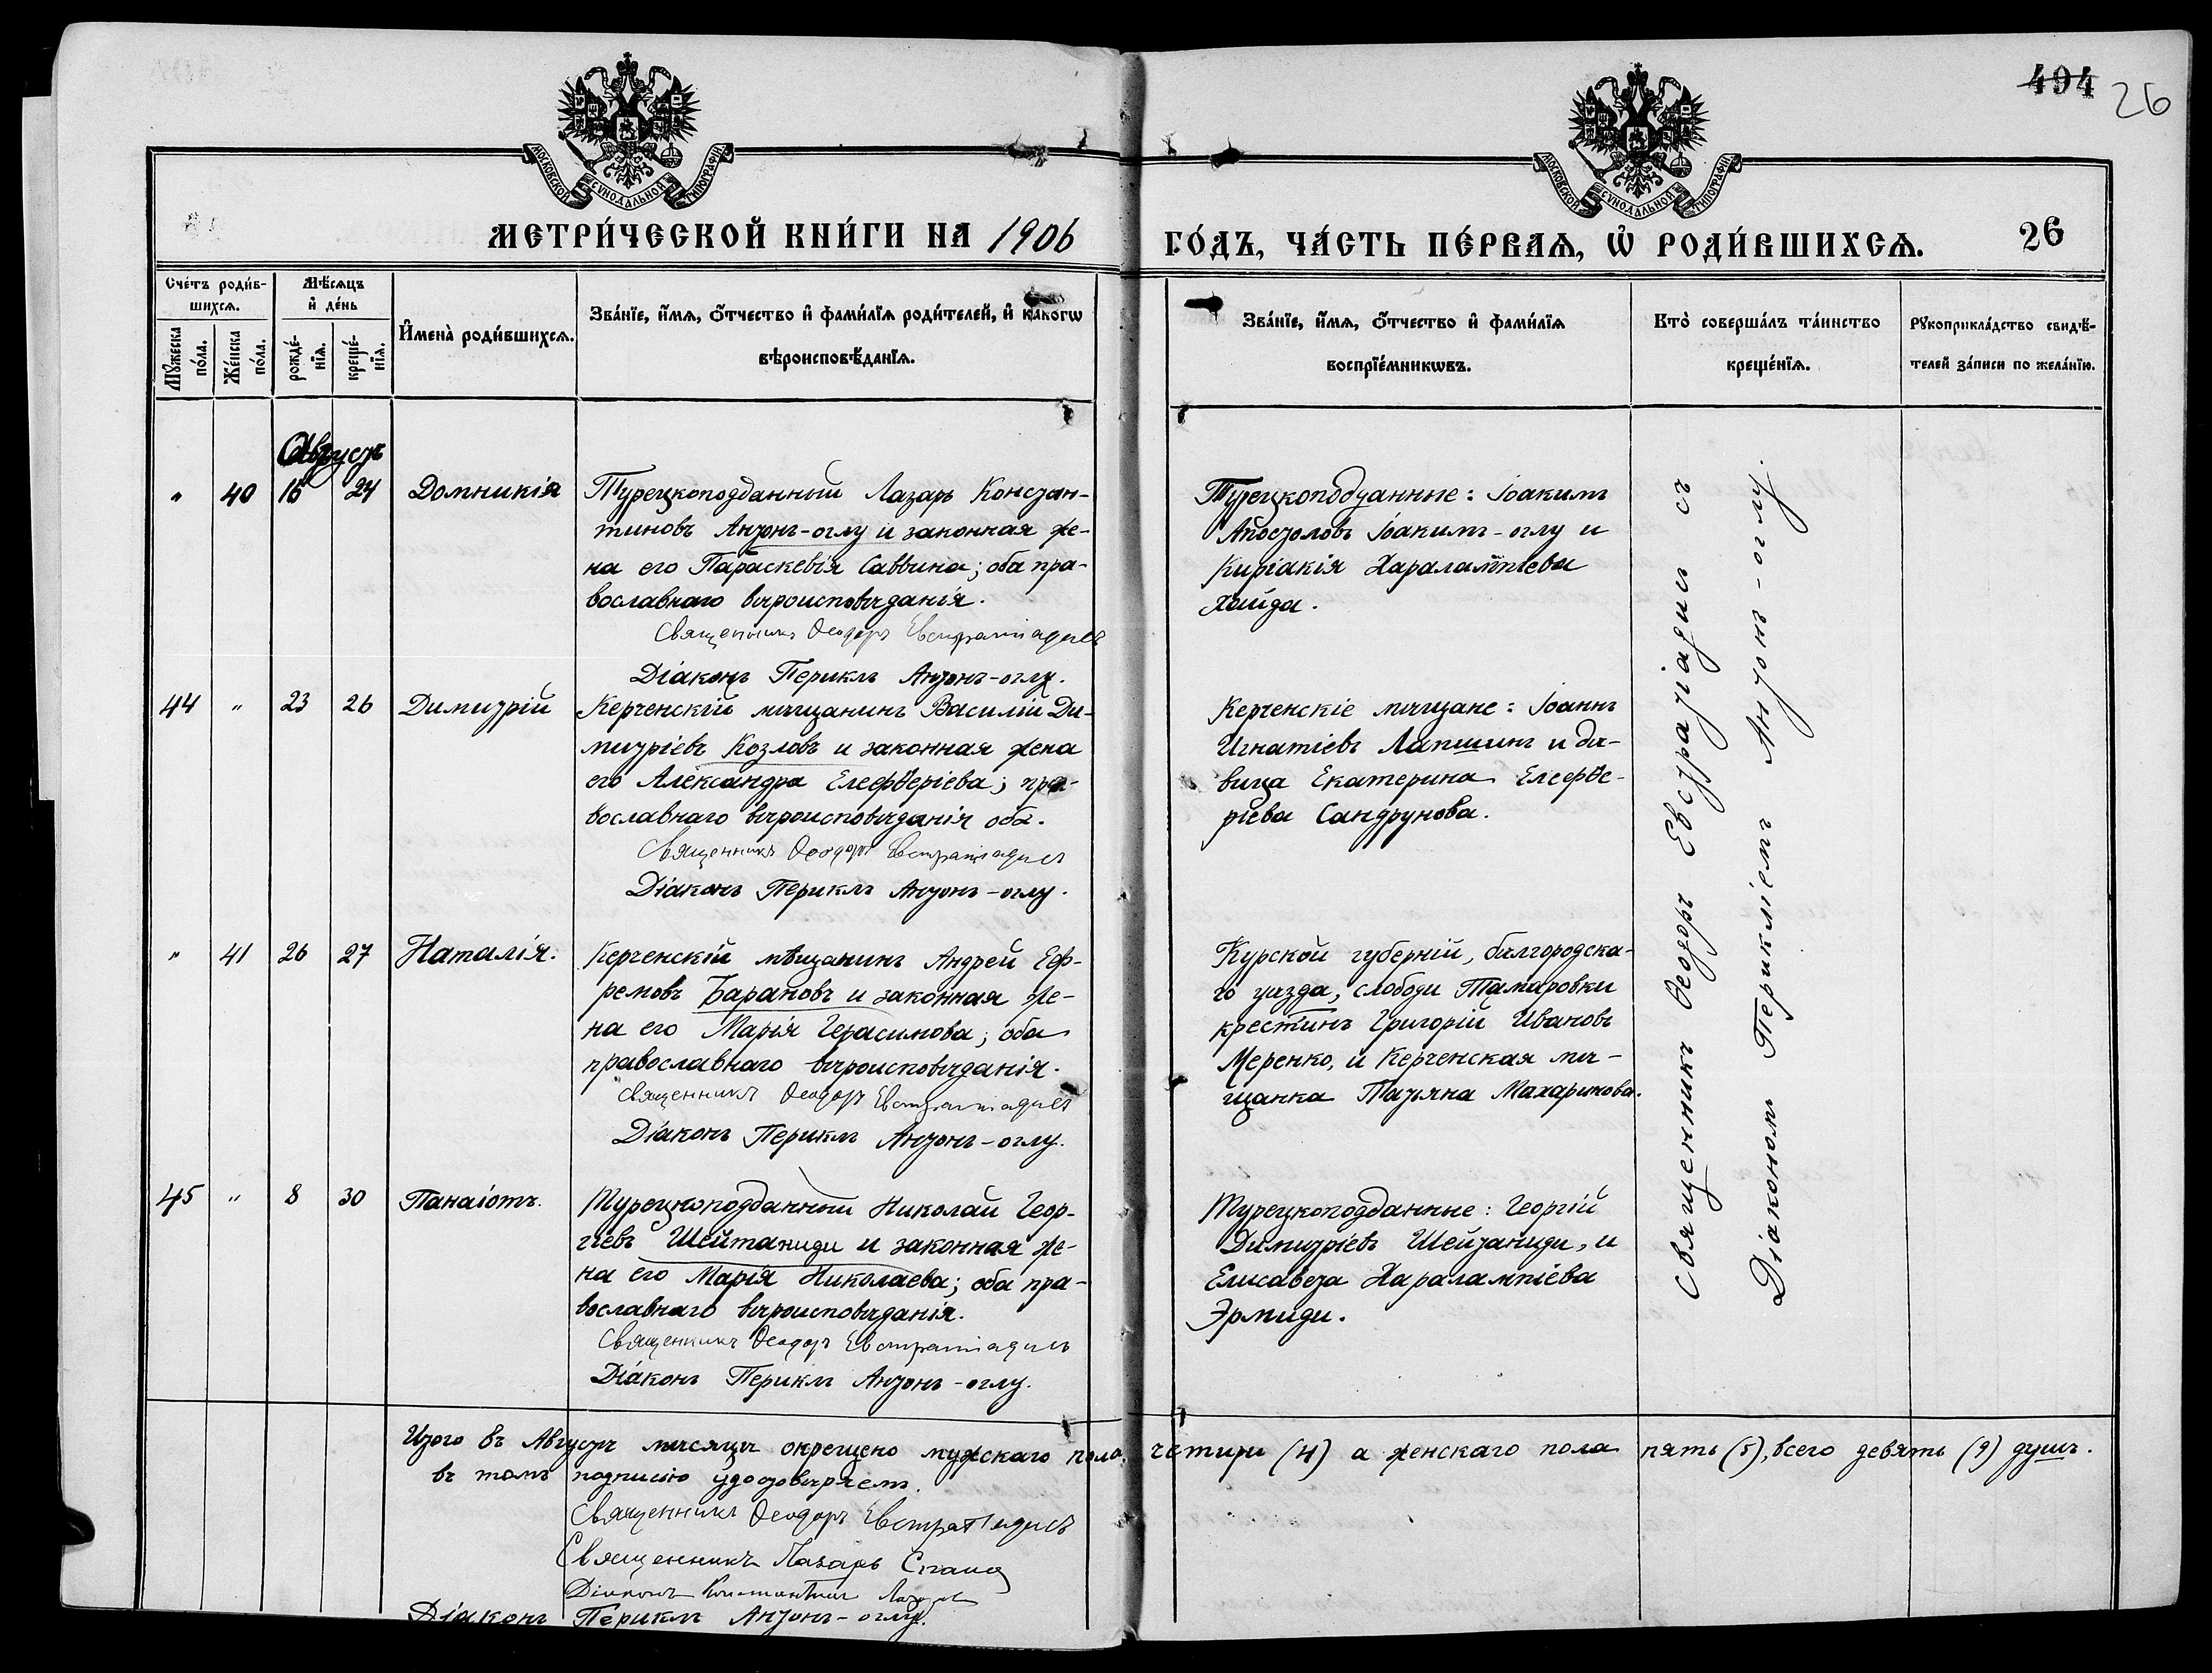 494 26
МОСКОВСКОЙ СѴНОДАЛЬНОЙ ТИПОГРАФІИ
МОСКОВСКОЙ СѴНОДАЛЬНОЙ ТИПОГРАФІИ
МЕТРИ́ЧЕСКОЙ КНИ́ГИ НА 1906 ГО́ДЪ, ЧА́СТЬ ПЕ́РВАѦ, Ѡ҆ РОДИ́ВШИХСѦ. 26
Сче́тъ роди́в-
шихсѧ.
Мѣ́сѧцъ
и҆ де́нь
Мꙋ́жеска
по́ла.
Же́нска
по́ла.
рожде́-
нїѧ.
креще́-
нїѧ.
И҆мена̀ роди́вшихсѧ.
Зва́нїе, и҆́мѧ, ѻ҆́тчество и҆ фами́лїѧ роди́телей, и҆ како́гѡ
вѣроисповѣ́данїѧ.
Зва́нїе, и҆́мѧ, ѻ҆́тчество и҆ фами́лїѧ
воспрїе́мникѡвъ.
Кто̀ соверша́лъ та́инство
креще́нїѧ.
Рꙋкоприкла́дство свидѣ́-
телей за́писи по жела́нїю.
Августъ
" 40 16 24 Домникія
Турецкоподданный Лазарь Констан-
тиновъ Антонъ-оглу и законная же-
на его Параскевія Саввина; оба пра-
вославнаго вѣроисповѣданія.
Священникъ Ѳеодоръ Евстратіадисъ
Діаконъ Периклъ Антонъ-оглу.
Турецкоподданные: Іоакимъ
Апостоловъ Іоакимъ-оглу и
Киріакія Харалампіева
Хаида.
44 " 23 26 Димитрій
Керченскій мѣщанинъ Василій Ди-
митріевъ Козловъ и законная жена
его Александра Елефѳеріева; пра-
вославнаго вѣроисповѣданія оба.
Священникъ Ѳеодоръ Евстратіадисъ
Діаконъ Периклъ Антонъ-оглу.
Керченскіе мѣщане: Іоаннъ
Игнатіевъ Лапшинъ и дѣ-
вица Екатерина Елефѳе-
ріева Сандрунова.
" 41 26 27 Наталія.
Керченскій мѣщанинъ Андрей Еф-
ремовъ Барановъ и законная же-
на его Марія Герасимова; оба
православнаго вѣроисповѣданія.
Священникъ Ѳеодоръ Евстратіадисъ
Діаконъ Периклъ Антонъ-оглу.
Курской губерніи, бѣлгородска-
го уѣзда, слободи Тамаровки
крестинъ Григорій Ивановъ
Меренко, и Керченская мѣ-
щанка Татьяна Махаринова.
45 " 8 30 Панаіотъ.
Турецкоподданный Николай Геор-
гіевъ Шейтаниди и законная же-
на его Марія Николаева; оба пра-
вославнаго вѣроисповѣданія.
Священникъ Ѳеодоръ Евстратіадисъ
Діаконъ Периклъ Антонъ-оглу.
Турецкоподданные: Георгій
Димитріевъ Шейтаниди, и
Елисавета Харалампіева
Эрмиди.
Священникъ Ѳеодоръ Евстратіадисъ съ
Діакономъ Перикліемъ Антонъ-оглу.
Итого въ Августѣ мѣсяцѣ окрещено мужскаго пола четыри (4) а женскаго пола пять (5), всего девять (9) душъ.
въ томъ подписью удостовѣряемъ.
Священникъ Ѳеодоръ Евстратіадисъ
Священникъ Лазарь
Діаконъ Константинъ
Діаконъ Периклъ Антонъ-оглу.